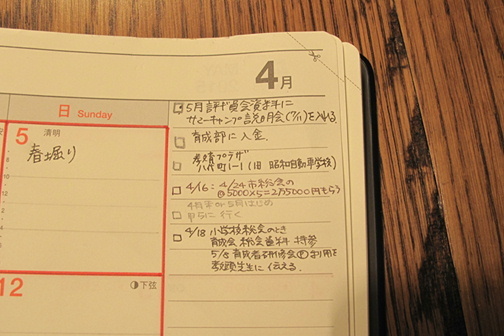 4月
日 Sunday
5 清明
春堀り
12 下弦
5月評議員会資料に
サマーキャンプ説明会(7/11)を入れる。
育成部に入金。
考績プラザ
八代町1-1(旧 昭和自動車学校)
4/16:4/24市総会の
@5000×5=2万5000円もらう
4月末か5月はじめ
に行く
4/18 小学校総会のとき
育成会 総会資料 持参
5/8 育成者研修会 利用を
先生に伝える。